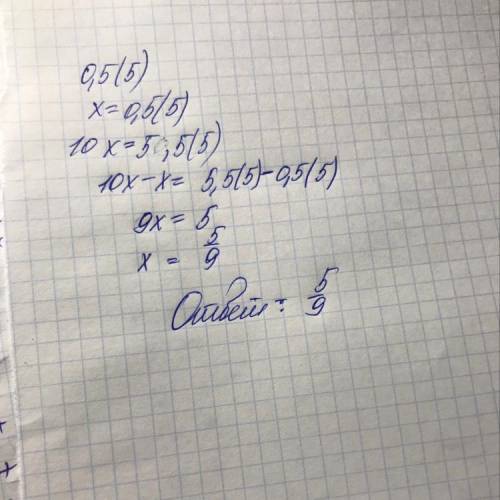 0,5(5)
x=0,5(5)
10x=5,5(5)
10x-x= 5,5(5)-0,5(5)
9x= 5
x = 5/9
Ответ: 5/9